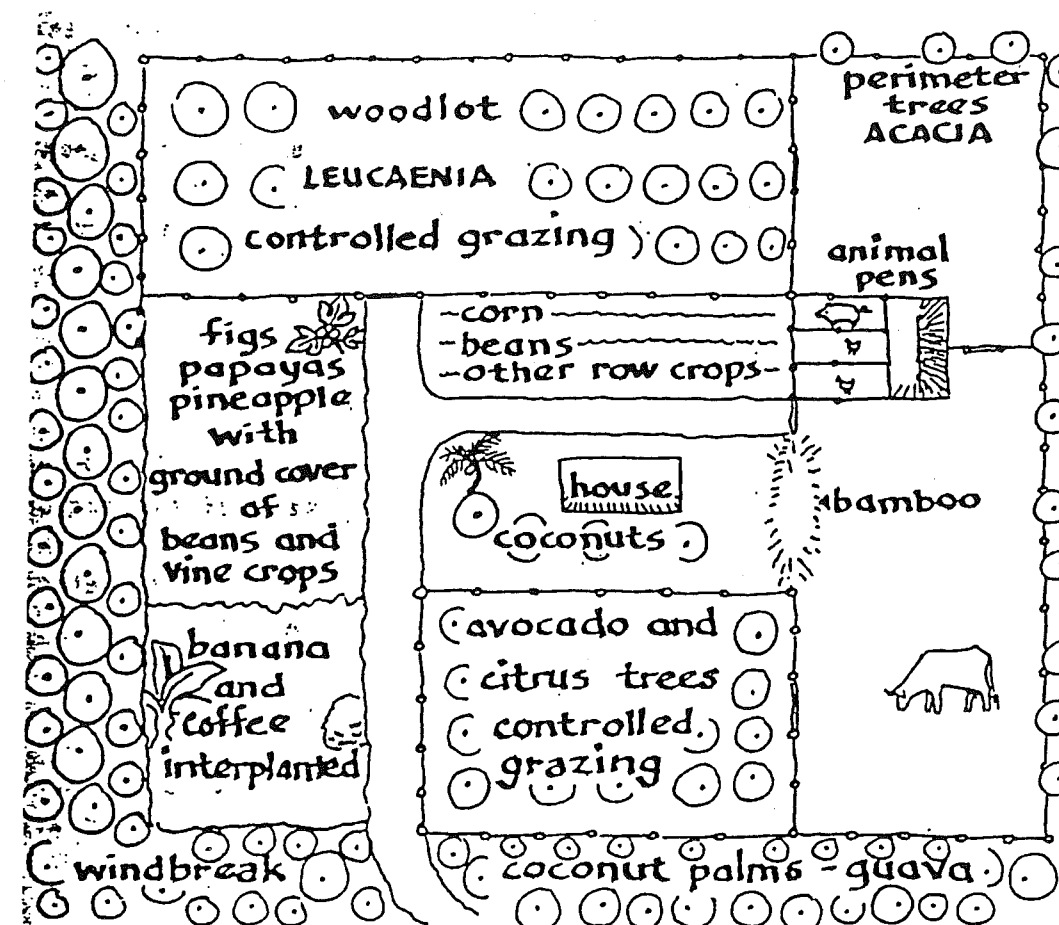 perimeter
trees
ACACIA
woodlot
LEUCAENIA
controlled grazing
animal
pens
figs
papayas
pineapple
with
ground cover
of
beans and
vine crops
corn
beans
other row crops
house
coconuts
bamboo
banana
and
coffee
interplanted
avocado and
citrus trees
controlled
grazing
windbreak
coconut palms - guava